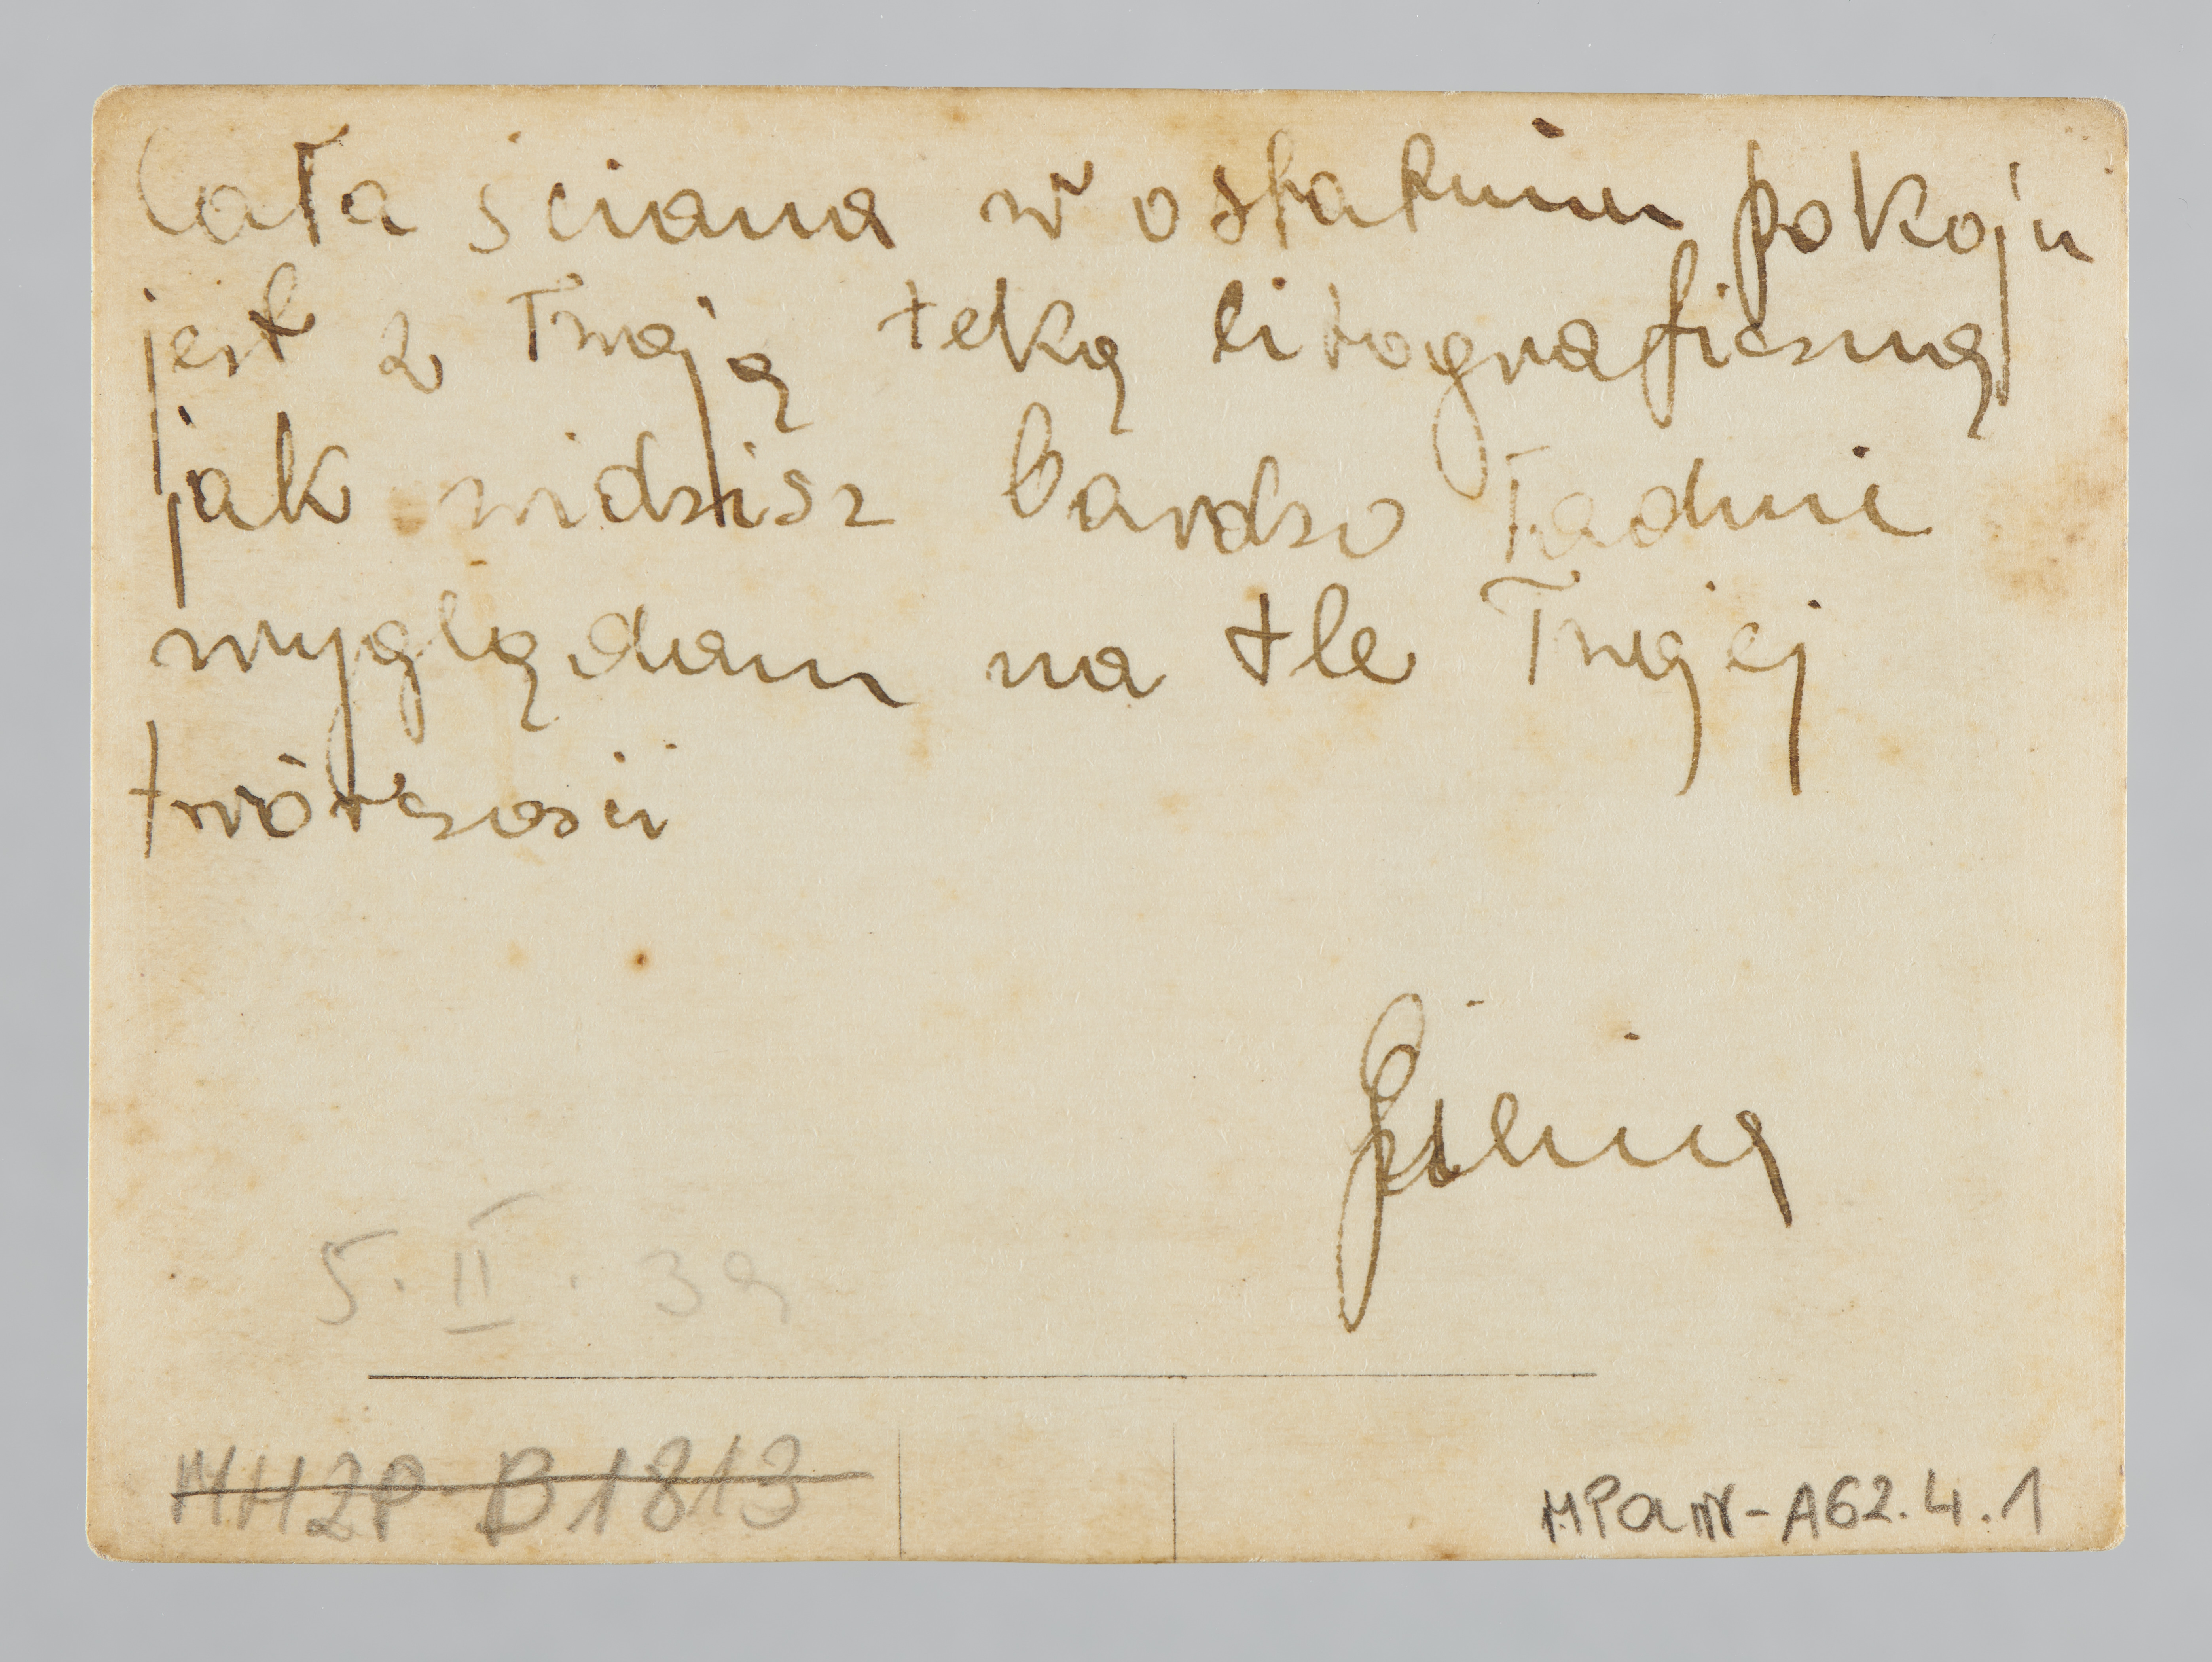 Cała ściana w ostatnim pokoju
jest z Twoją teką litograficzną
jak widzisz bardzo ładnie
wyglądam na tle Twojej
twórczości
5. II. 39
MHZP B1813
MPaw-A62.4.1